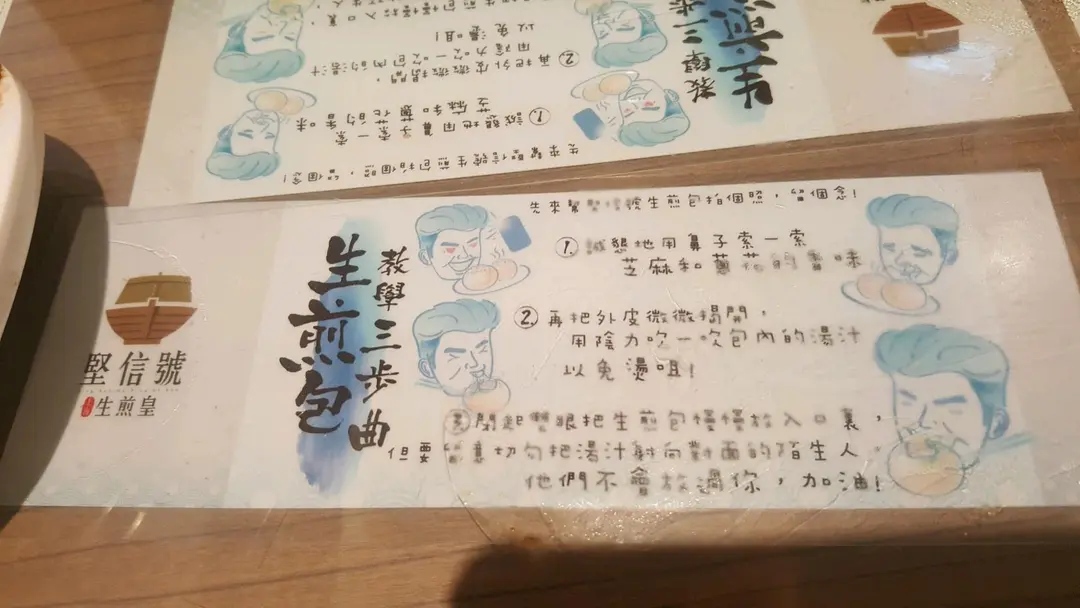 堅信號
生煎皇
生煎包
教學三步曲
先來幫堅信號生煎包拍個照，留個念！
1. 誠懇地用鼻子索一索
芝麻和蔥花的香味
2. 再把外皮微微揭開，
用陰力吹一吹包內的湯汁
以免燙咀！
3. 閉起雙眼把生煎包慢慢放入口裏，
但要留意切勿把湯汁射向對面的陌生人。
他們不會放過你，加油！
生煎
教學三步
先來幫堅信號生煎包拍個照，留個念！
1. 誠懇地用鼻子索一索
芝麻和蔥花的香味
2. 再把外皮微微揭開，
用陰力吹一吹包內的湯汁
以免燙咀！